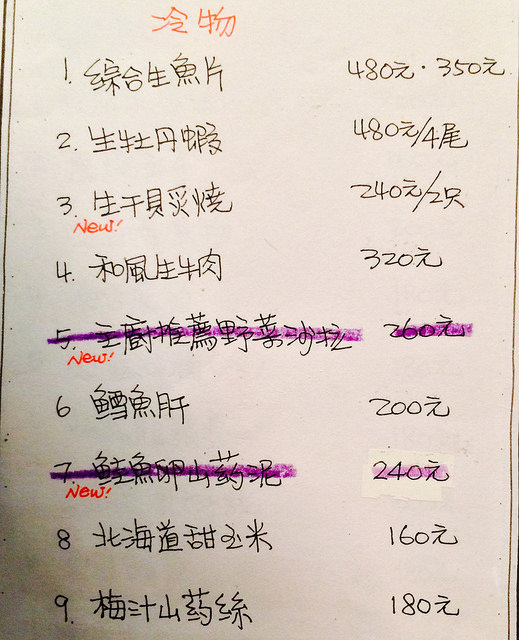 冷物
1. 綜合生魚片 480元·350元
2. 生牡丹蝦 480元/4尾
3. 生干貝炙燒 240元/2只
New!
4. 和風生牛肉 320元
5. 主廚推薦野菜沙拉 260元
New!
6 鱈魚肝 200元
7. 鮭魚卵山药泥 240元
New!
8 北海道甜玉米 160元
9. 梅汁山药絲 180元